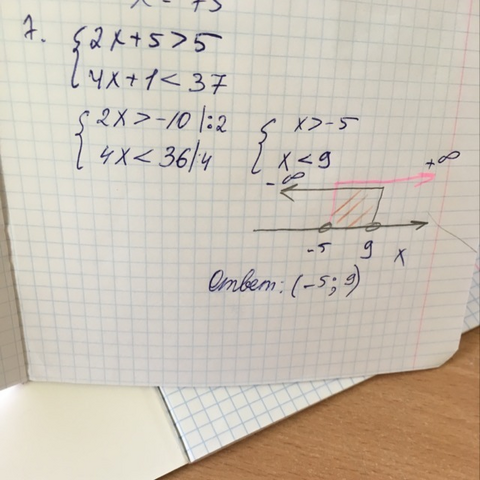 7. { 2x+5>5
4x+1<37
{ 2x>-10 |:2 { x>-5
4x<36 |:4 x<9
-∞ +∞
-5 9 x
Ответ: (-5; 9)